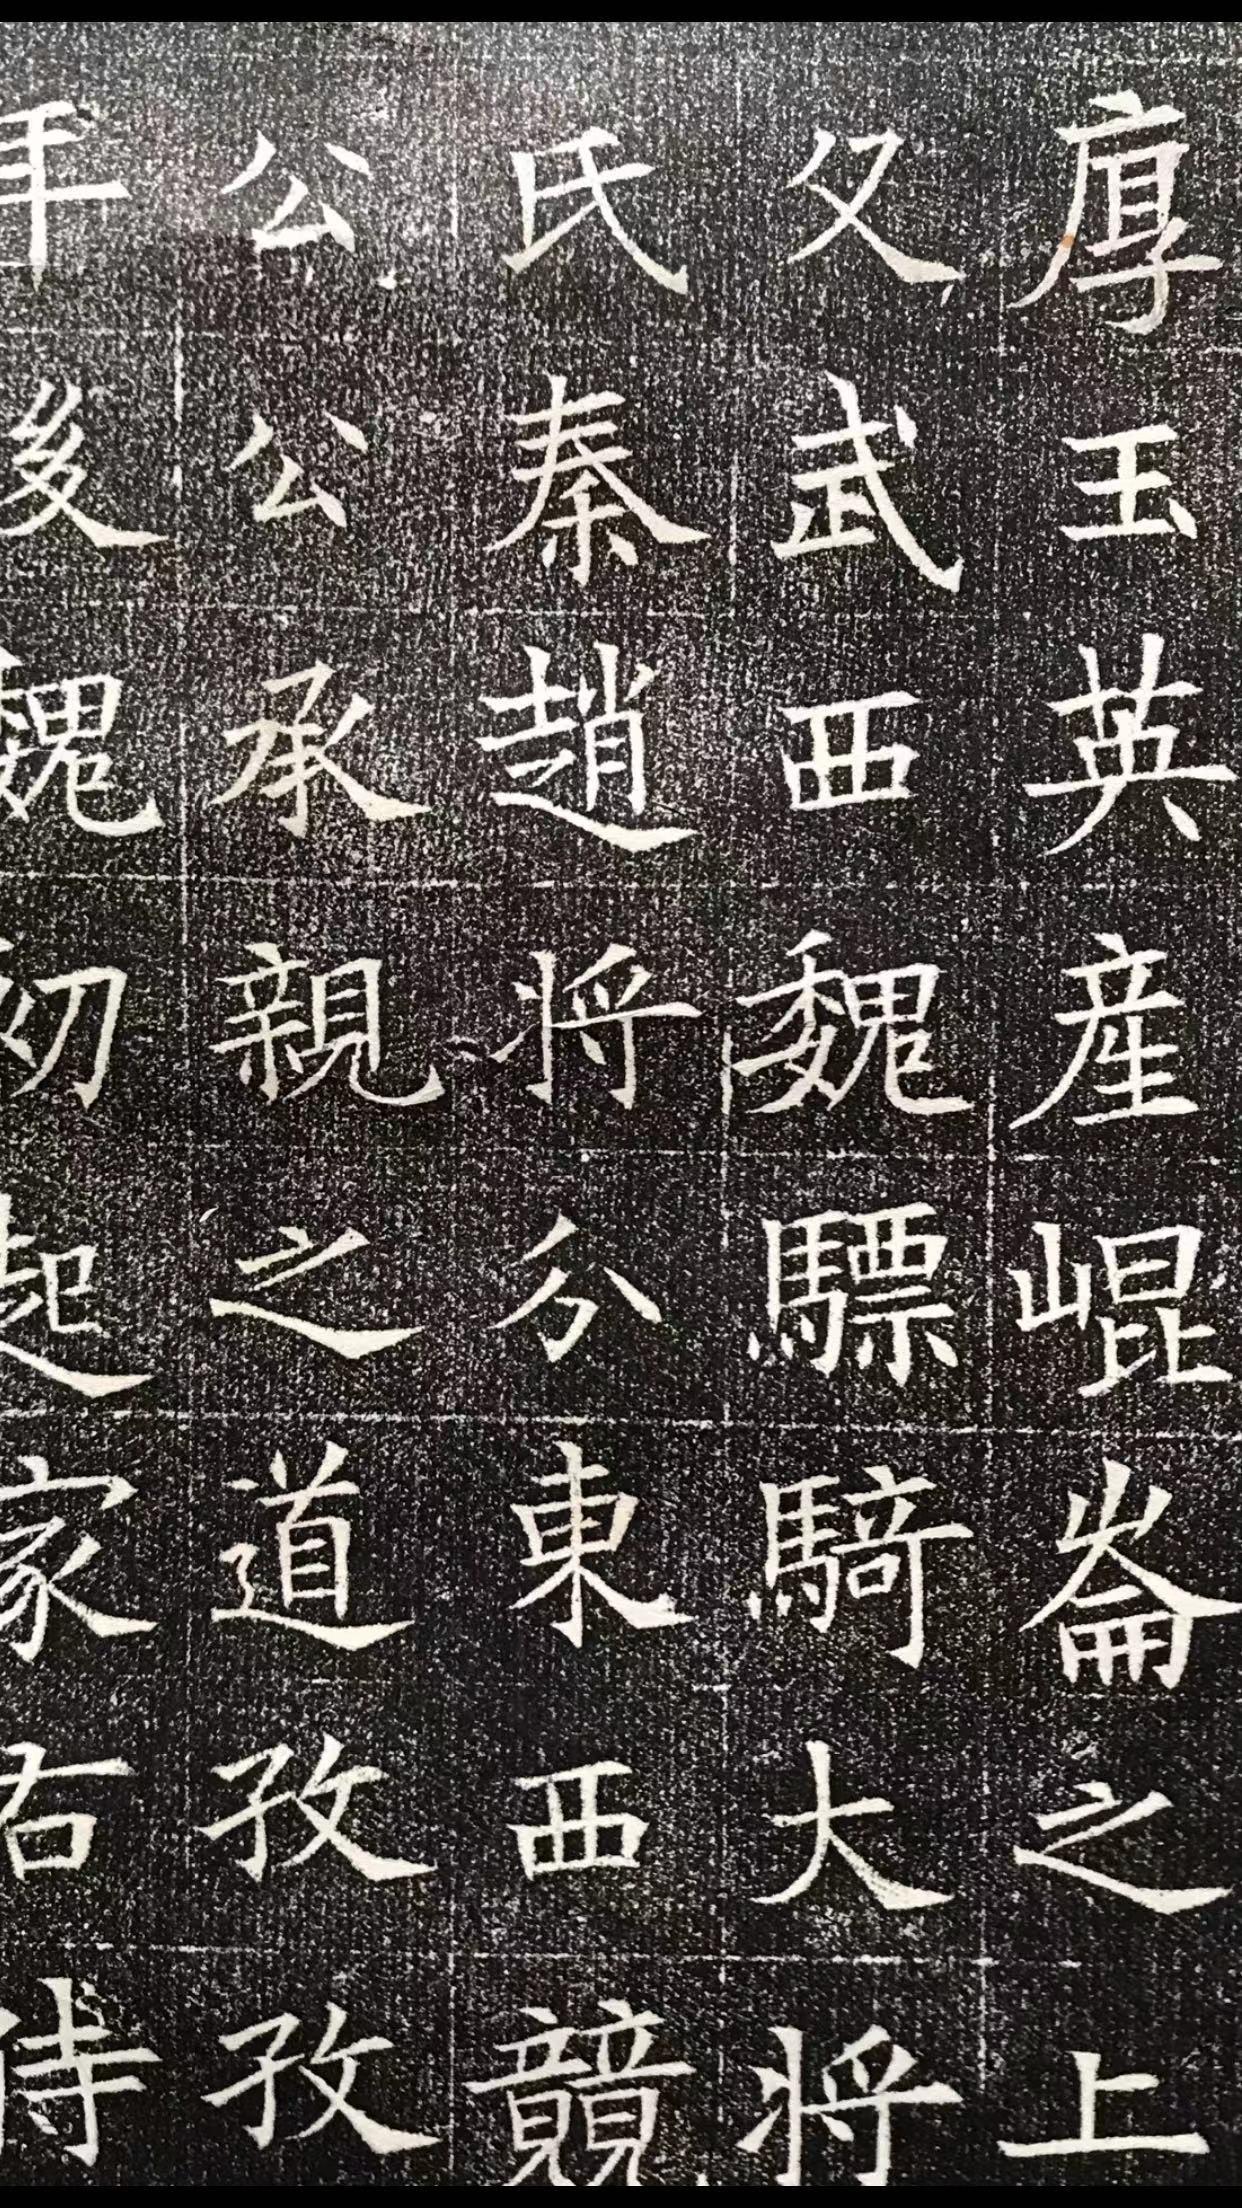 厚玉英産崐崙之上
父武西魏驃騎大将
氏秦趙将分東西競
公公承親之道孜孜
年後魏初起家右侍